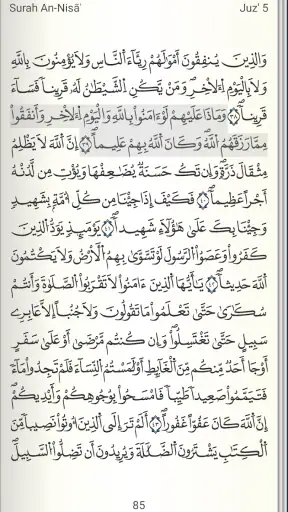 Surah An-Nisāʼ Juzʼ 5
وَٱلَّذِينَ يُنفِقُونَ أَمْوَٰلَهُمْ رِئَآءَ ٱلنَّاسِ وَلَا يُؤْمِنُونَ بِٱللَّهِ
وَلَا بِٱلْيَوْمِ ٱلْءَاخِرِ وَمَن يَكُنِ ٱلشَّيْطَٰنُ لَهُۥ قَرِينًا فَسَآءَ
قَرِينًا ٣٨ وَمَاذَا عَلَيْهِمْ لَوْ ءَامَنُوا۟ بِٱللَّهِ وَٱلْيَوْمِ ٱلْءَاخِرِ وَأَنفَقُوا۟
مِمَّا رَزَقَهُمُ ٱللَّهُ وَكَانَ ٱللَّهُ بِهِمْ عَلِيمًا ٣٩ إِنَّ ٱللَّهَ لَا يَظْلِمُ
مِثْقَالَ ذَرَّةٍ وَإِن تَكُ حَسَنَةً يُضَٰعِفْهَا وَيُؤْتِ مِن لَّدُنْهُ
أَجْرًا عَظِيمًا ٤٠ فَكَيْفَ إِذَا جِئْنَا مِن كُلِّ أُمَّةٍۭ بِشَهِيدٍ
وَجِئْنَا بِكَ عَلَىٰ هَٰٓؤُلَآءِ شَهِيدًا ٤١ يَوْمَئِذٍ يَوَدُّ ٱلَّذِينَ
كَفَرُوا۟ وَعَصَوُا۟ ٱلرَّسُولَ لَوْ تُسَوَّىٰ بِهِمُ ٱلْأَرْضُ وَلَا يَكْتُمُونَ
ٱللَّهَ حَدِيثًا ٤٢ يَٰٓأَيُّهَا ٱلَّذِينَ ءَامَنُوا۟ لَا تَقْرَبُوا۟ ٱلصَّلَوٰةَ وَأَنتُمْ
سُكَٰرَىٰ حَتَّىٰ تَعْلَمُوا۟ مَا تَقُولُونَ وَلَا جُنُبًا إِلَّا عَابِرِى
سَبِيلٍ حَتَّىٰ تَغْتَسِلُوا۟ وَإِن كُنتُم مَّرْضَىٰٓ أَوْ عَلَىٰ سَفَرٍ
أَوْ جَآءَ أَحَدٌ مِّنكُم مِّنَ ٱلْغَآئِطِ أَوْ لَٰمَسْتُمُ ٱلنِّسَآءَ فَلَمْ تَجِدُوا۟ مَآءً
فَتَيَمَّمُوا۟ صَعِيدًا طَيِّبًا فَٱمْسَحُوا۟ بِوُجُوهِكُمْ وَأَيْدِيكُمْ
إِنَّ ٱللَّهَ كَانَ عَفُوًّا غَفُورًا ٤٣ أَلَمْ تَرَ إِلَى ٱلَّذِينَ أُوتُوا۟ نَصِيبًا مِّنَ
ٱلْكِتَٰبِ يَشْتَرُونَ ٱلضَّلَٰلَةَ وَيُرِيدُونَ أَن تَضِلُّوا۟ ٱلسَّبِيلَ
85